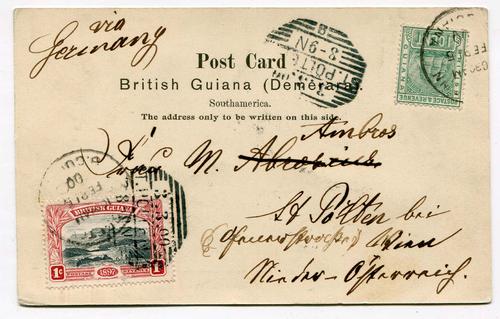 via
Germany
Post Card
British Guiana (Demerara).
Southamerica.
The address only to be written on this side.
Ambros
M. Abrobius
St Pölten bei
Wien
Nieder-Österreich.
BRITISH GUIANA
1c 1897 1c
POSTAGE & REVENUE
ST. PÖLTEN